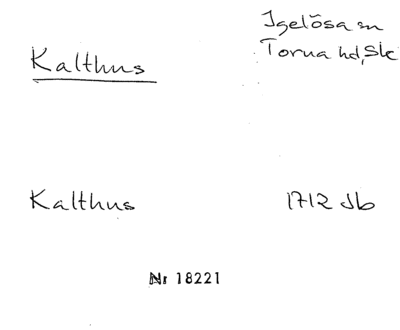 Igelösa sn
Kalthus
Torna hd, Sk
Kalthus
1712 Jb
Nr 18221